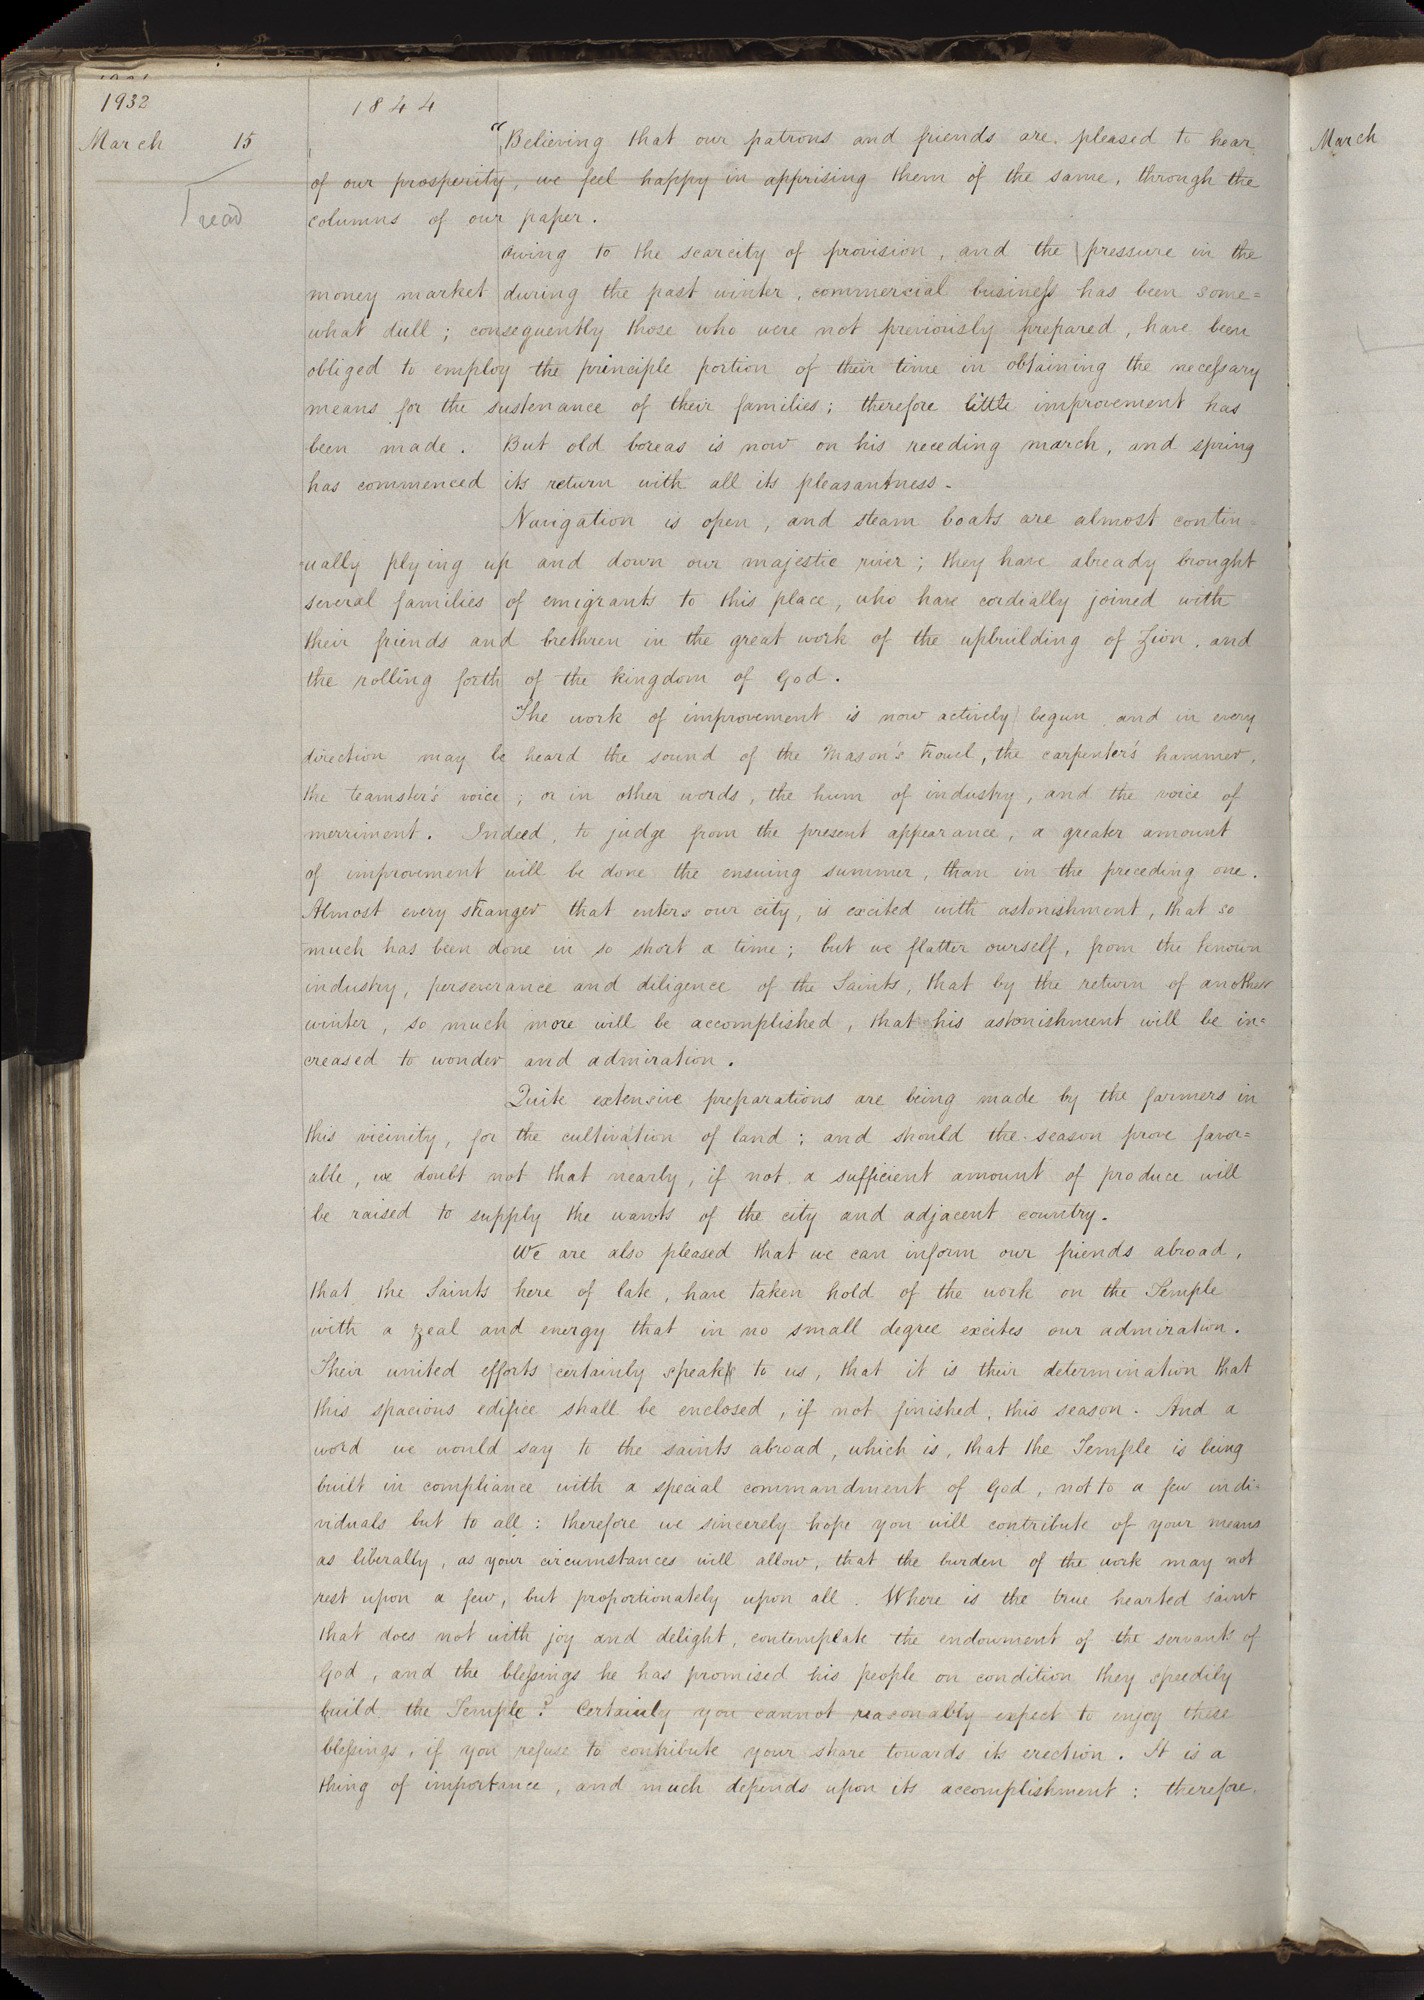 1932
1844
March 15
read
"Believing that our patrons and friends are pleased to hear
of our prosperity, we feel happy in apprising them of the same, through the
columns of our paper.
Owing to the scarcity of provision, and the pressure in the
money market during the past winter, commercial business has been some=
what dull; consequently those who were not previously prepared, have been
obliged to employ the principle portion of their time in obtaining the necessary
means for the sustenance of their families; therefore little improvement has
been made. But old boreas is now on his receding march, and spring
has commenced its return with all its pleasantness.
Navigation is open, and steam boats are almost contin=
-ually plying up and down our majestic river; they have already brought
several families of emigrants to this place, who have cordially joined with
their friends and brethren in the great work of the upbuilding of Zion, and
the rolling forth of the kingdom of God.
The work of improvement is now actively begun and in every
direction may be heard the sound of the Mason's trowel, the carpenter's hammer,
the teamster's voice; or in other words, the hum of industry, and the voice of
merriment. Indeed, to judge from the present appearance, a greater amount
of improvement will be done the ensuing summer, than in the preceding one.
Almost every stranger that enters our city, is excited with astonishment, that so
much has been done in so short a time; but we flatter ourself, from the known
industry, perseverance and diligence of the Saints, that by the return of another
winter, so much more will be accomplished, that his astonishment will be in=
creased to wonder and admiration.
Quite extensive preparations are being made by the farmers in
this vicinity, for the cultivation of land; and should the season prove favor=
able, we doubt not that nearly, if not a sufficient amount of produce will
be raised to supply the wants of the city and adjacent country.
We are also pleased that we can inform our friends abroad,
that the Saints here of late, have taken hold of the work on the Temple
with a zeal and energy that in no small degree excites our admiration.
Their united efforts certainly speak to us, that it is their determination that
this spacious edifice shall be enclosed, if not finished, this season. And a
word we would say to the saints abroad, which is, that the Temple is being
built in compliance with a special commandment of God, not to a few indi=
viduals but to all: therefore we sincerely hope you will contribute of your means
as liberally, as your circumstances will allow, that the burden of the work may not
rest upon a few, but proportionately upon all. Where is the true hearted saint
that does not with joy and delight, contemplate the endowment of the servants of
God, and the blessings he has promised his people on condition they speedily
build the Temple? Certainly you cannot reasonably expect to enjoy these
blessings, if you refuse to contribute your share towards its erection. It is a
thing of importance, and much depends upon its accomplishment: therefore,
March